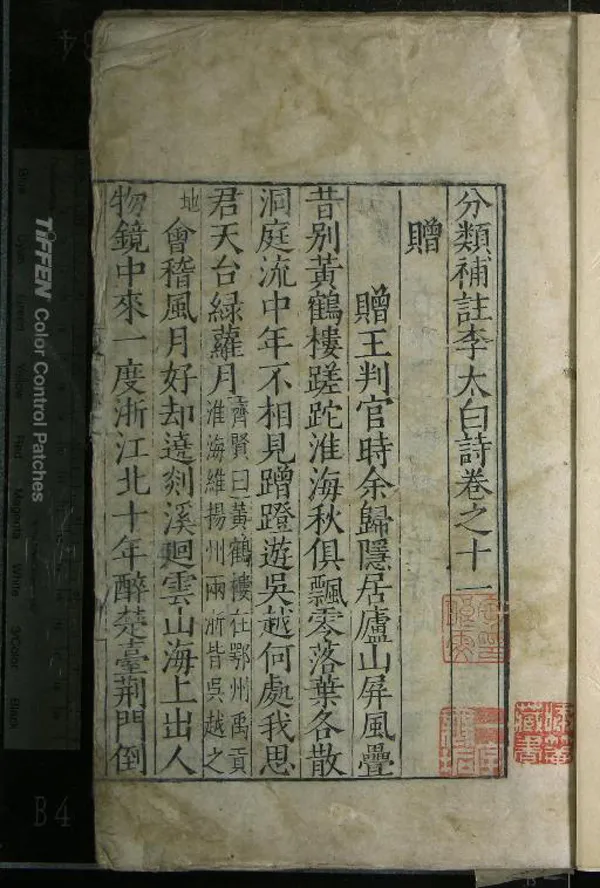 分類補註李太白詩卷之十一
贈
贈王判官時余歸隱居廬山屏風疊
昔別黃鶴樓蹉跎淮海秋俱飄零落葉各散
洞庭流中年不相見蹭蹬遊吳越何處我思
君天台綠蘿月
齊賢曰黃鶴樓在鄂州禹貢
淮海維揚州兩浙皆吳越之
地
會稽風月好却遶剡溪迴雲山海上出人
物鏡中來一度浙江北十年醉楚臺荊門倒
藏書
TIFFEN Color Control Patches
B4